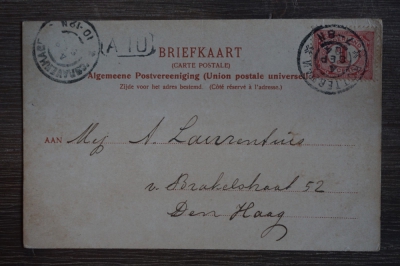 A 10
BRIEFKAART
(CARTE POSTALE)
Algemeene Postvereeniging (Union postale universelle)
Zijde voor het adres bestemd. (Côté réservé à l'adresse.)
AAN Mej A. Laurentius
v. Brakelstraat 52
Den Haag